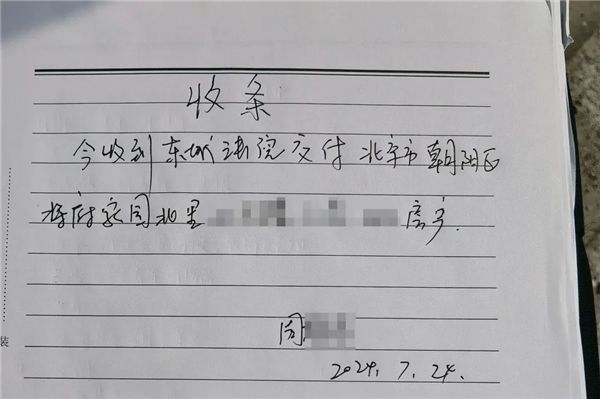 收条
今收到东城法院交付北京市朝阳区
将府家园北里房户.
周
2024.7.24.
装